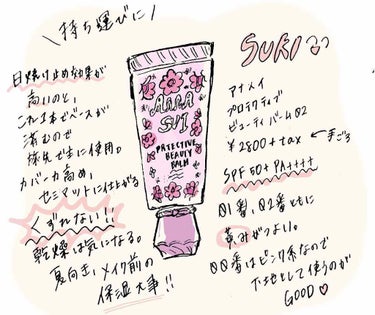 ＼持ち運びに／
日焼け止め効果が
高いのと、
これ1本でベースが
済むので
旅先で主に使用。
カバー力高め、
セミマットに仕上がる
くずれない!!
乾燥は気になる。
夏向き、メイク前の
保湿大事!!
ANNA
SUI
PROTECTIVE
BEAUTY
BALM
SUKI
アナスイ
プロテクティブ
ビューティ バーム 02
¥2800+tax ←手ごろ
SPF50+ PA++++
01番、02番ともに
黄みがつよい。
00番はピンク系なので
下地として使うのが
GOOD♡